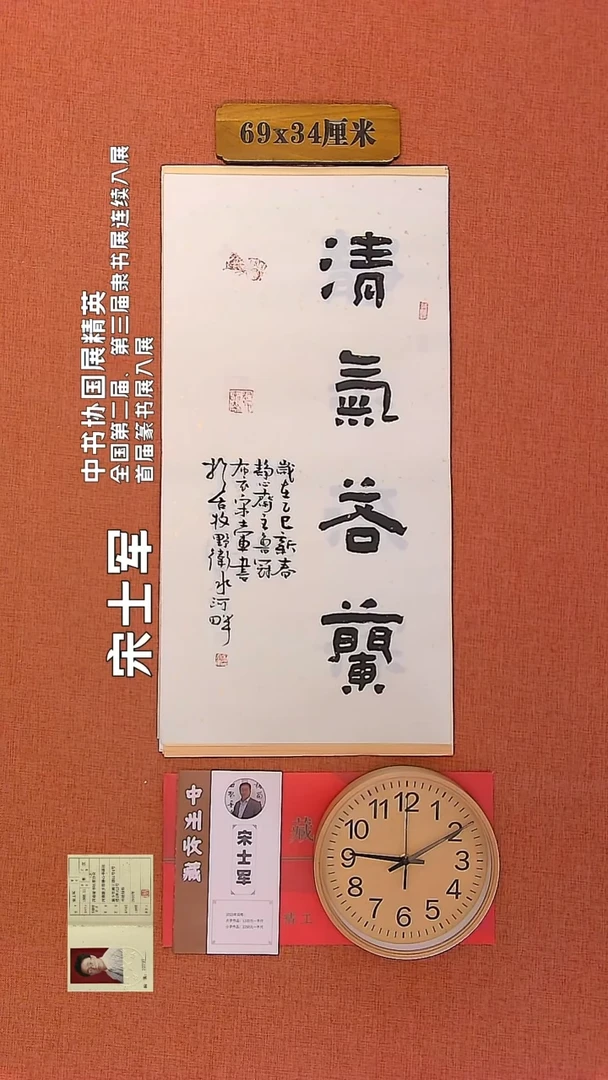 69x34厘米
清氣若蘭
歲在乙巳新春
静心齋主魯冠
布衣宋士軍書
於古牧野衛水河畔
中书协国展精英
全国第二届、第三届隶书展连续入展
首届篆书展入展
宋士军
中州收藏
宋士军
藏
12
1
2
3
4
5
6
7
8
9
10
11